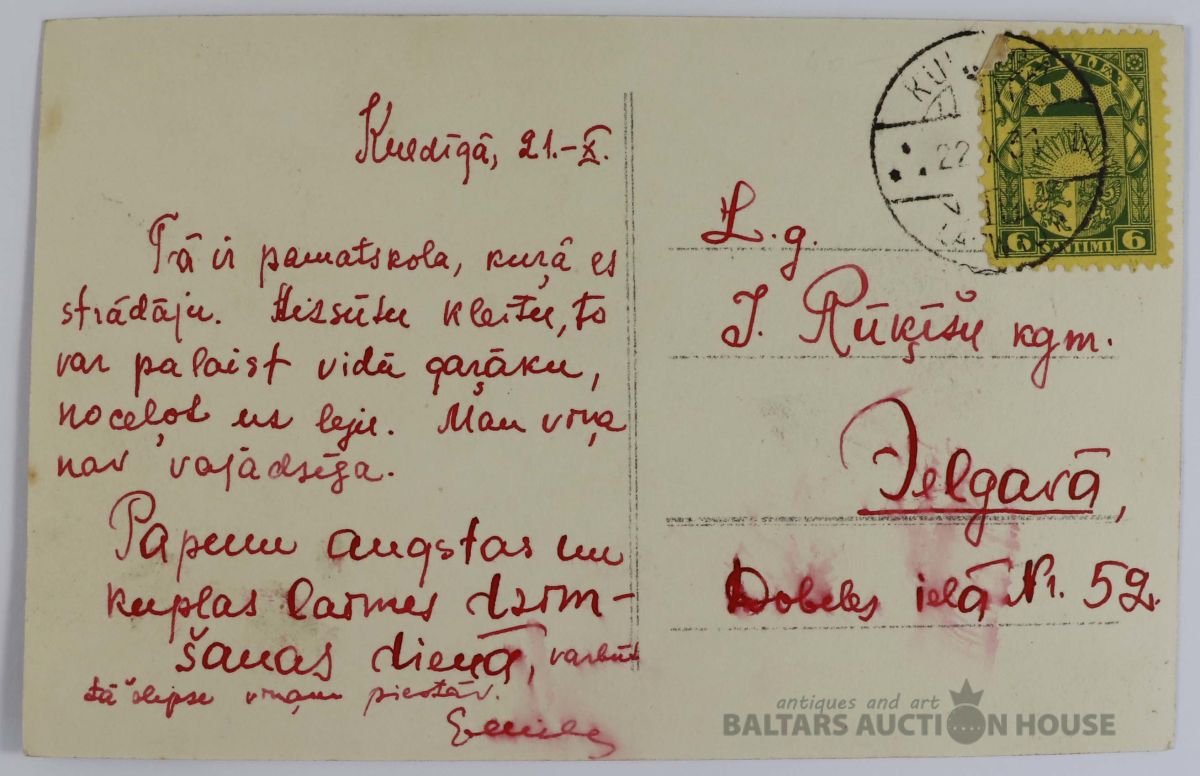 Kuldīgā, 21.-X.
Tā ir pamatskola, kuŗā es
strādāju. Aizsūtu kleitu, to
var palaist vidū gaŗāku,
noceļot uz leju. Man viņa
nav vajadzīga.
Papum augstas un
kuplas laimes dzim-
šanas dienā, varbūt
tā šlipse viņam piestāv.
L. g.
J. Rūķīšu kgm.
Jelgavā,
Dobeles ielā Nr. 52.
22
LATVIJA
6 SANTIMI 6
antiques and art
BALTARS AUCTION HOUSE